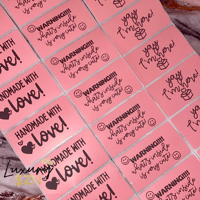 WARNING!!!!
what's inside
is very cute
yay
I'm here
HANDMADE WITH
love!
WARNING!!!!
what's inside
is very cute
yay
I'm here
HANDMADE WITH
love!
WARNING!!!!
what's inside
is very cute
yay
I'm here
HANDMADE WITH
love!
WARNING!!!!
what's inside
is very cute
Luxury